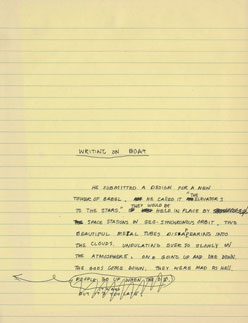 WRITING ON BOAT
HE SUBMITTED A DESIGN FOR A NEW
TOWER OF BABEL, HE CALLED IT "THE ELEVATORS
TO THE STARS." THEY WOULD BE HELD IN PLACE BY
SPACE STATIONS IN GEO-SYNCHRONUS ORBIT, TWO
BEAUTIFUL METAL TUBES DISAPPEARING INTO
THE CLOUDS, UNDULATING EVER SO SLOWLY IN
THE ATMOSPHERE. ONE GOING UP AND ONE DOWN.
THE GODS COME DOWN. THEY WERE MAD AS HELL
PEOPLE GO UP WHEN THE DIE.
BUT